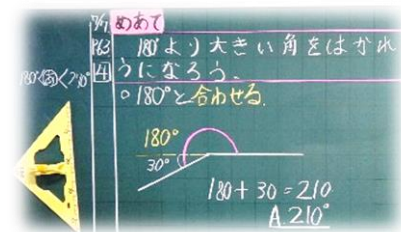 めあて
P63
4
180°より大きい角をはかれ
うになろう。
○180°と合わせる。
180°
30°
180+30=210
A.210°